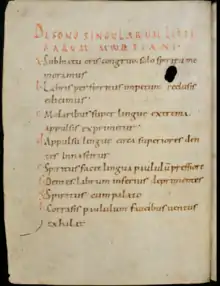 DE SONO SINGULARUM LITTE
RARUM MARTIANI
A Sub hiatu oris congruo solo spiritu me
moramus
B Labris per spiritus impetum reclusis
edicimus
C Molaribus super lingue extrema
appulsis exprimitur
D Appulsu lingue circa superiores den
tes innascitur
E Spiritus facit lingua paululum pressiore
F Dentes labrum inferius deprimentes
G Spiritus cum palato
H Contractis paululum faucibus ventus
exhalat